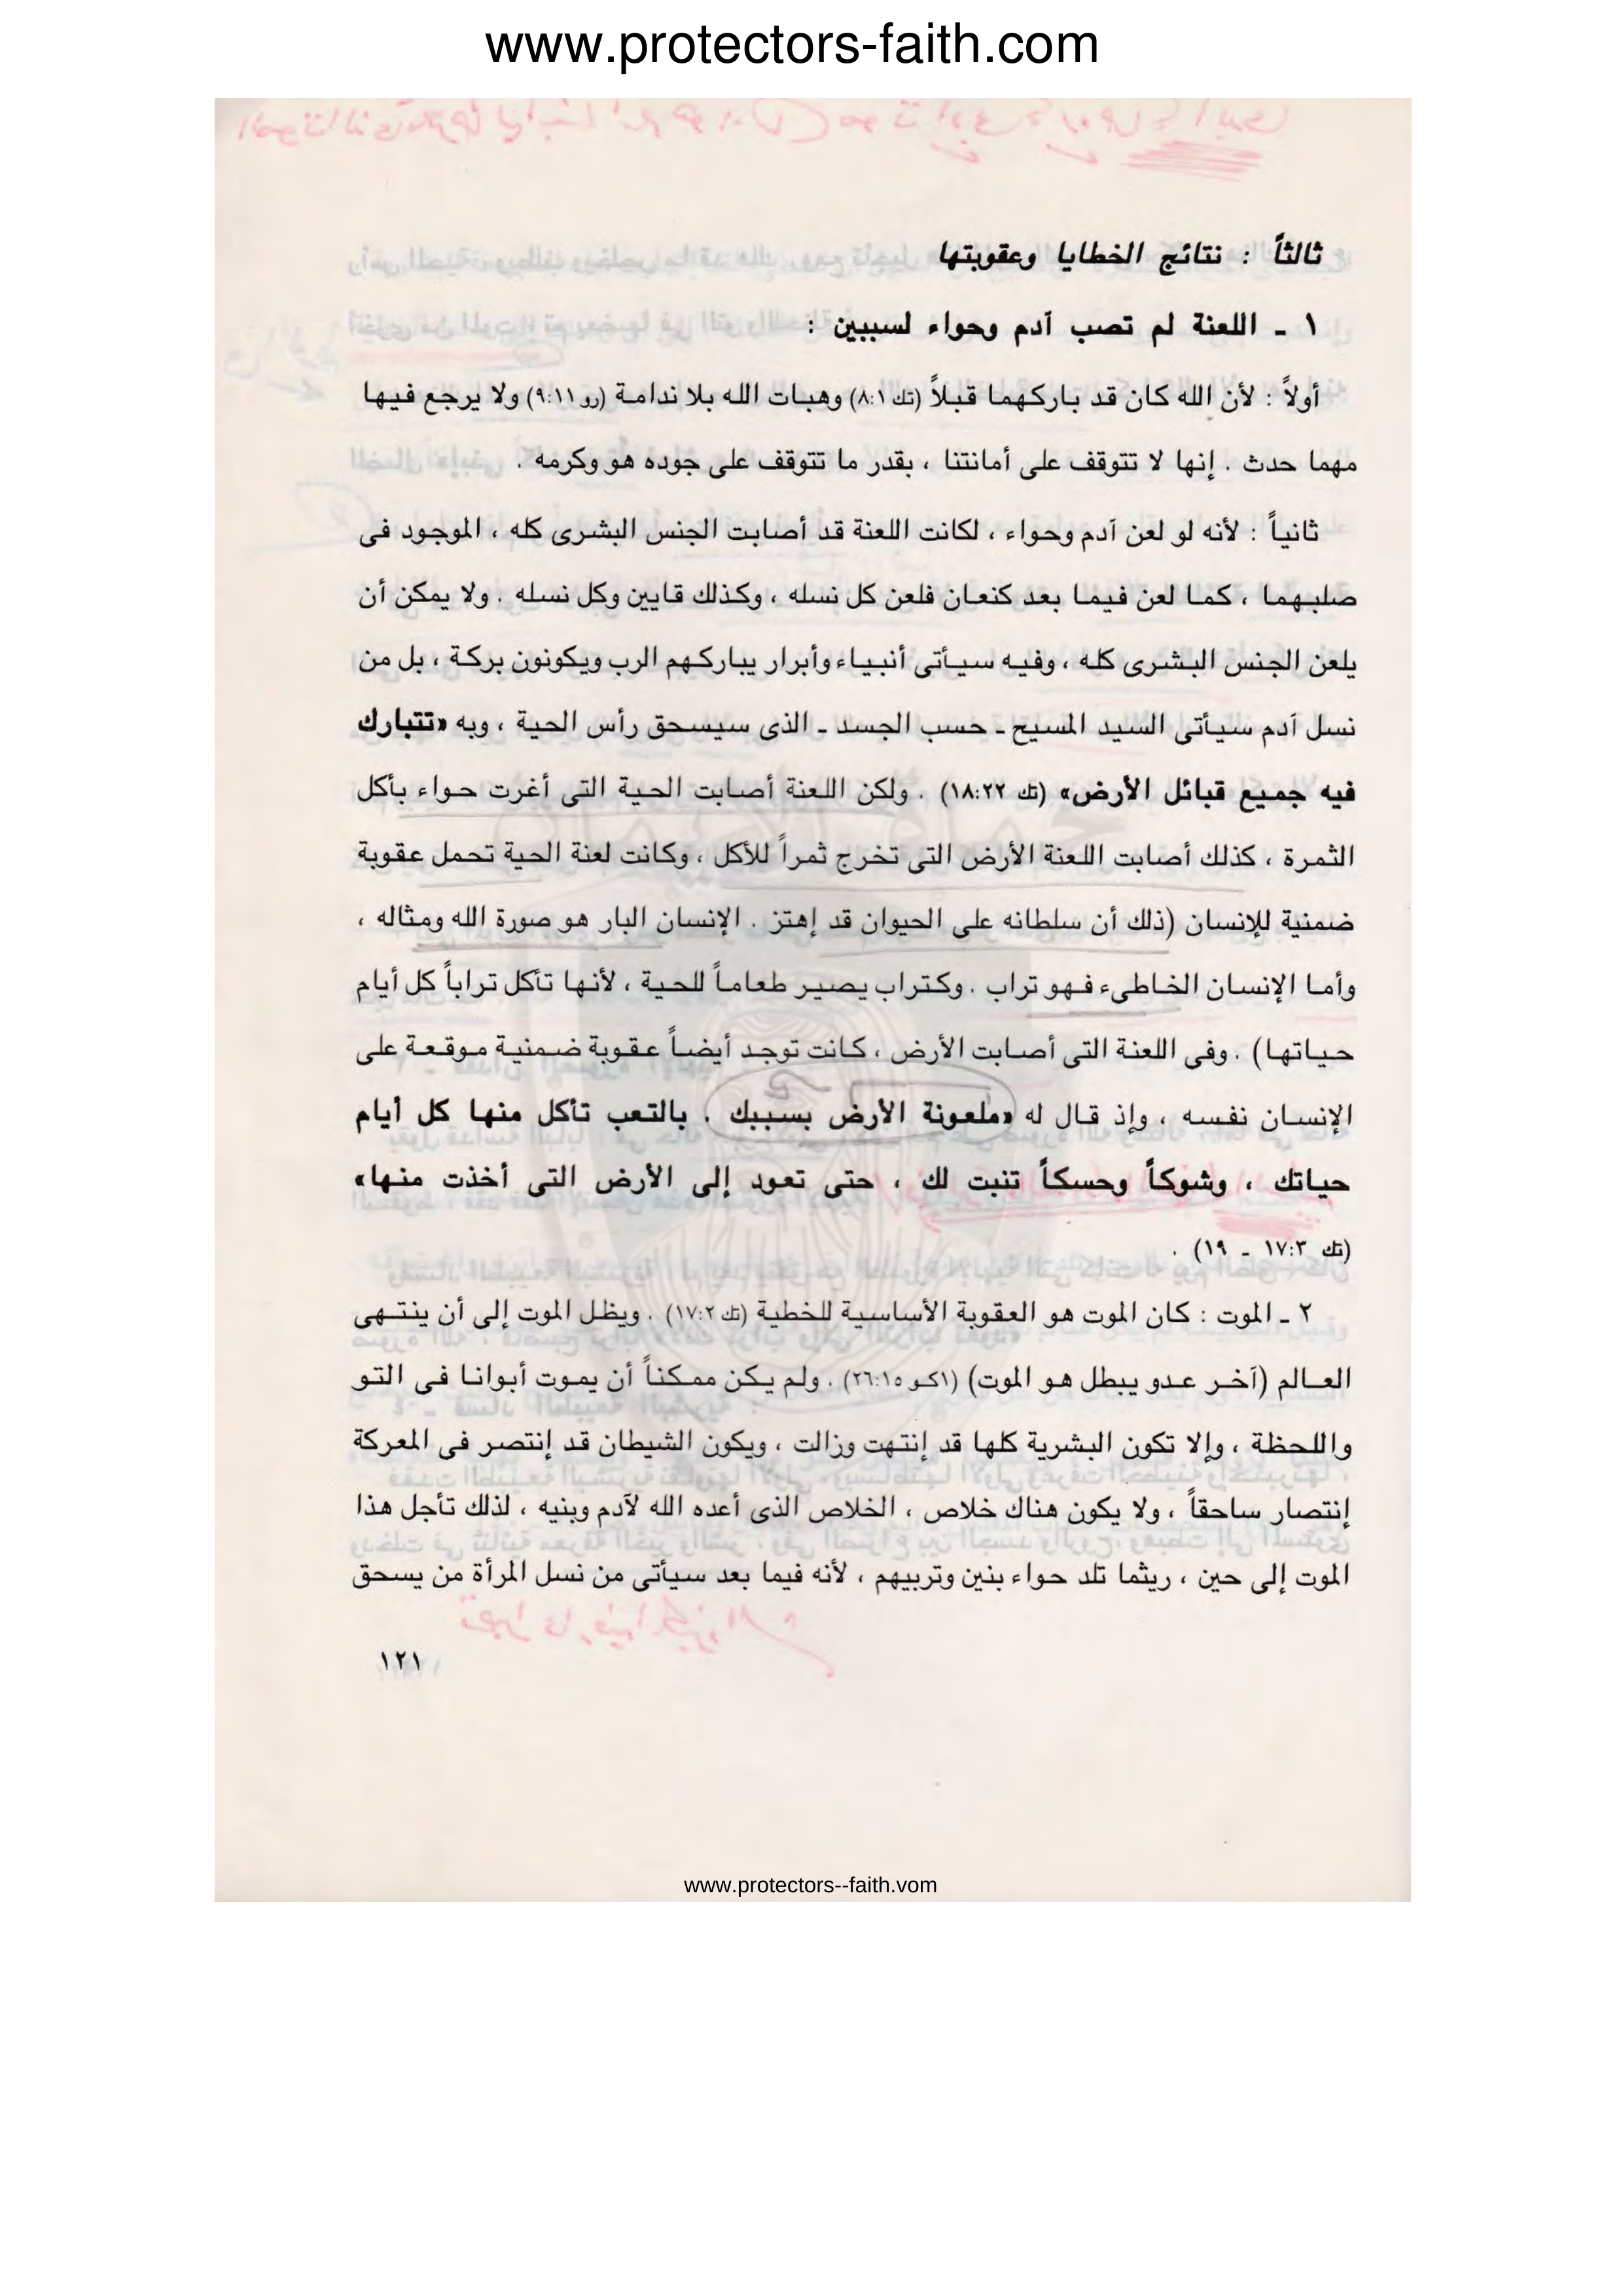 www.protectors-faith.com
ثالثاً : نتائج الخطايا وعقوبتها
١ ـ اللعنة لم تصب آدم وحواء لسببين :
أولاً : لأن الله كان قد باركهما قبلاً (تك ٨:١) وهبات الله بلا ندامة (رو ٩:١١) ولا يرجع فيها
مهما حدث . إنها لا تتوقف على أمانتنا ، بقدر ما تتوقف على جوده هو وكرمه .
ثانياً : لأنه لو لعن آدم وحواء ، لكانت اللعنة قد أصابت الجنس البشرى كله ، الموجود فى
صلبهما ، كما لعن فيما بعد كنعان فلعن كل نسله ، وكذلك قايين وكل نسله . ولا يمكن أن
يلعن الجنس البشرى كله ، وفيه سيأتى أنبياء وأبرار يباركهم الرب ويكونون بركة ، بل من
نسل آدم سيأتى السيد المسيح ـ حسب الجسد ـ الذى سيسحق رأس الحية ، وبه «تتبارك
فيه جميع قبائل الأرض» (تك ١٨:٢٢) . ولكن اللعنة أصابت الحية التى أغرت حواء بأكل
الثمرة ، كذلك أصابت اللعنة الأرض التى تخرج ثمراً للأكل ، وكانت لعنة الحية تحمل عقوبة
ضمنية للإنسان (ذلك أن سلطانه على الحيوان قد إهتز . الإنسان البار هو صورة الله ومثاله ،
وأما الإنسان الخاطىء فهو تراب . وكتراب يصير طعاماً للحية ، لأنها تأكل تراباً كل أيام
حياتها) . وفى اللعنة التى أصابت الأرض ، كانت توجد أيضاً عقوبة ضمنية موقعة على
الإنسان نفسه ، وإذ قال له «ملعونة الأرض بسببك . بالتعب تأكل منها كل أيام
حياتك ، وشوكاً وحسكاً تنبت لك ، حتى تعود إلى الأرض التى أخذت منها»
(تك ١٧:٣ ـ ١٩) .
٢ ـ الموت : كان الموت هو العقوبة الأساسية للخطية (تك ١٧:٢) . ويظل الموت إلى أن ينتهى
العالم (آخر عدو يبطل هو الموت) (١كو ٢٦:١٥) . ولم يكن ممكناً أن يموت أبوانا فى التو
واللحظة ، وإلا تكون البشرية كلها قد إنتهت وزالت ، ويكون الشيطان قد إنتصر فى المعركة
إنتصار ساحقاً ، ولا يكون هناك خلاص ، الخلاص الذى أعده الله لآدم وبنيه ، لذلك تأجل هذا
الموت إلى حين ، ريثما تلد حواء بنين وتربيهم ، لأنه فيما بعد سيأتى من نسل المرأة من يسحق
١٢١
www.protectors--faith.vom